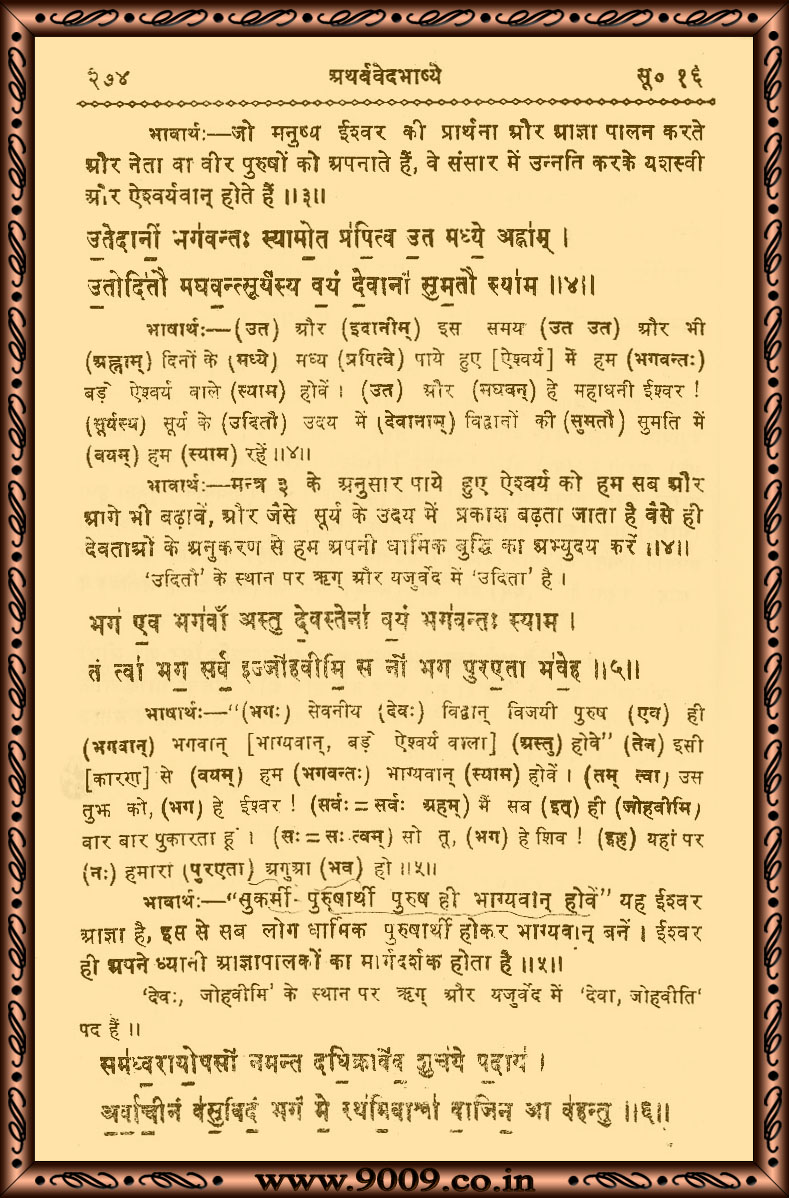 २७४ अथर्ववेदभाष्ये सू० १६
भावार्थः—जो मनुष्य ईश्वर की प्रार्थना और आज्ञा पालन करते
और नेता वा वीर पुरुषों को अपनाते हैं, वे संसार में उन्नति करके यशस्वी
और ऐश्वर्यवान् होते हैं ॥३॥
उ॒तेदानीं॒ भग॑वन्तः स्यामो॒त प्र॑पि॒त्व उ॒त मध्ये॒ अह्ना॑म् ।
उ॒तोदि॑तौ मघव॒न्त्सूर्य॑स्य व॒यं दे॒वानां॑ सुम॒तौ स्या॑म ॥४॥
भाषार्थः—(उत) और (इदानीम्) इस समय (उत उत) और भी
(अह्नाम्) दिनों के (मध्ये) मध्य (प्रपित्वे) पाये हुए [ऐश्वर्य] में हम (भगवन्तः)
बड़े ऐश्वर्य वाले (स्याम) होवें । (उत) और (मघवन्) हे महाधनी ईश्वर !
(सूर्यस्य) सूर्य के (उदितौ) उदय में (देवानाम्) विद्वानों की (सुमतौ) सुमति में
(वयम्) हम (स्याम) रहें ॥४॥
भावार्थः—मन्त्र ३ के अनुसार पाये हुए ऐश्वर्य को हम सब और
आगे भी बढ़ावें, और जैसे सूर्य के उदय में प्रकाश बढ़ता जाता है वैसे ही
देवताओं के अनुकरण से हम अपनी धार्मिक बुद्धि का अभ्युदय करें ॥४॥
'उदितौ' के स्थान पर ऋग् और यजुर्वेद में 'उदिता' है ।
भग॑ ए॒व भग॑वाँ अस्तु दे॒वस्तेना॑ व॒यं भग॑वन्तः स्याम ।
तं त्वा॑ भग॒ सर्व॒ इज्जो॑हवीमि॒ स नो॑ भग पुरए॒ता भ॑वे॒ह ॥५॥
भाषार्थः—"(भगः) सेवनीय (देवः) विद्वान् विजयी पुरुष (एव) ही
(भगवान्) भगवान् [भाग्यवान्, बड़े ऐश्वर्य वाला] (अस्तु) होवे" (तेन) इसी
[कारण] से (वयम्) हम (भगवन्तः) भाग्यवान् (स्याम) होवें । (तम् त्वा) उस
तुझ को, (भग) हे ईश्वर ! (सर्वः = सर्वः अहम्) मैं सब (इत्) ही (जोहवीमि)
बार बार पुकारता हूं । (सः = सः त्वम्) सो तू, (भग) हे शिव ! (इह) यहां पर
(नः) हमारा (पुरएता) अगुआ (भव) हो ॥५॥
भावार्थः—"सुकर्मी पुरुषार्थी पुरुष ही भाग्यवान् होवें" यह ईश्वर
आज्ञा है, इस से सब लोग धार्मिक पुरुषार्थी होकर भाग्यवान् बनें । ईश्वर
ही अपने ध्यानी आज्ञापालकों का मार्गदर्शक होता है ॥५॥
'देवः, जोहवीमि' के स्थान पर ऋग् और यजुर्वेद में 'देवा, जोहवीति'
पद हैं ॥
सम॑ध्व॒रायो॒षसो॑ नमन्त दधि॒क्रावे॑व॒ शुच॑ये प॒दाय॑ ।
अ॒र्वा॒ची॒नं व॑सु॒विदं॒ भगं॑ मे॒ रथ॑मि॒वाश्वा॑ वा॒जिन॒ आ व॑हन्तु ॥६॥
www.9009.co.in